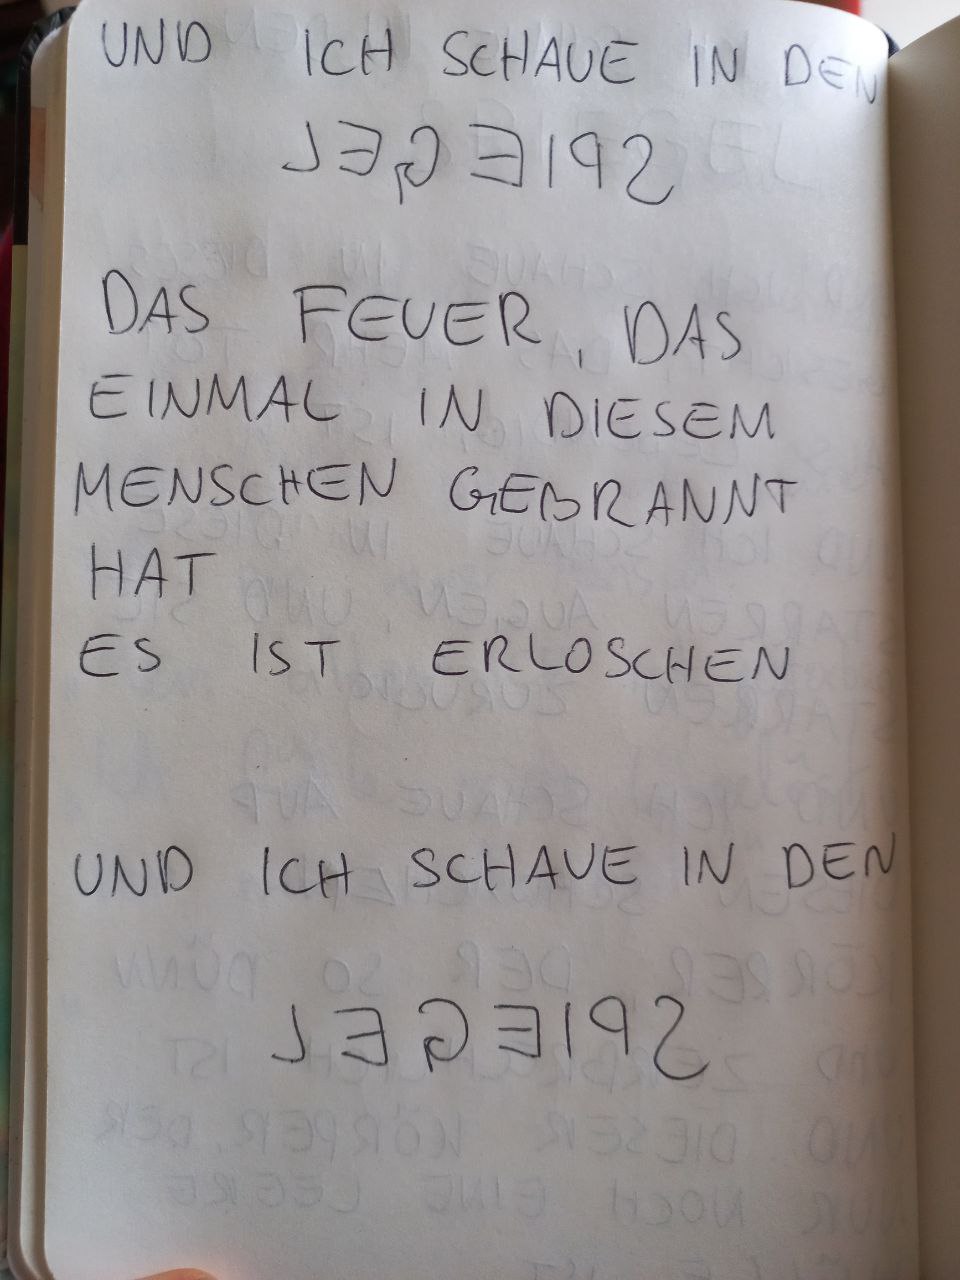 UND ICH SCHAUE IN DEN
SPIEGEL
DAS FEUER, DAS
EINMAL IN DIESEM
MENSCHEN GEBRANNT
HAT
ES IST ERLOSCHEN
UND ICH SCHAUE IN DEN
SPIEGEL